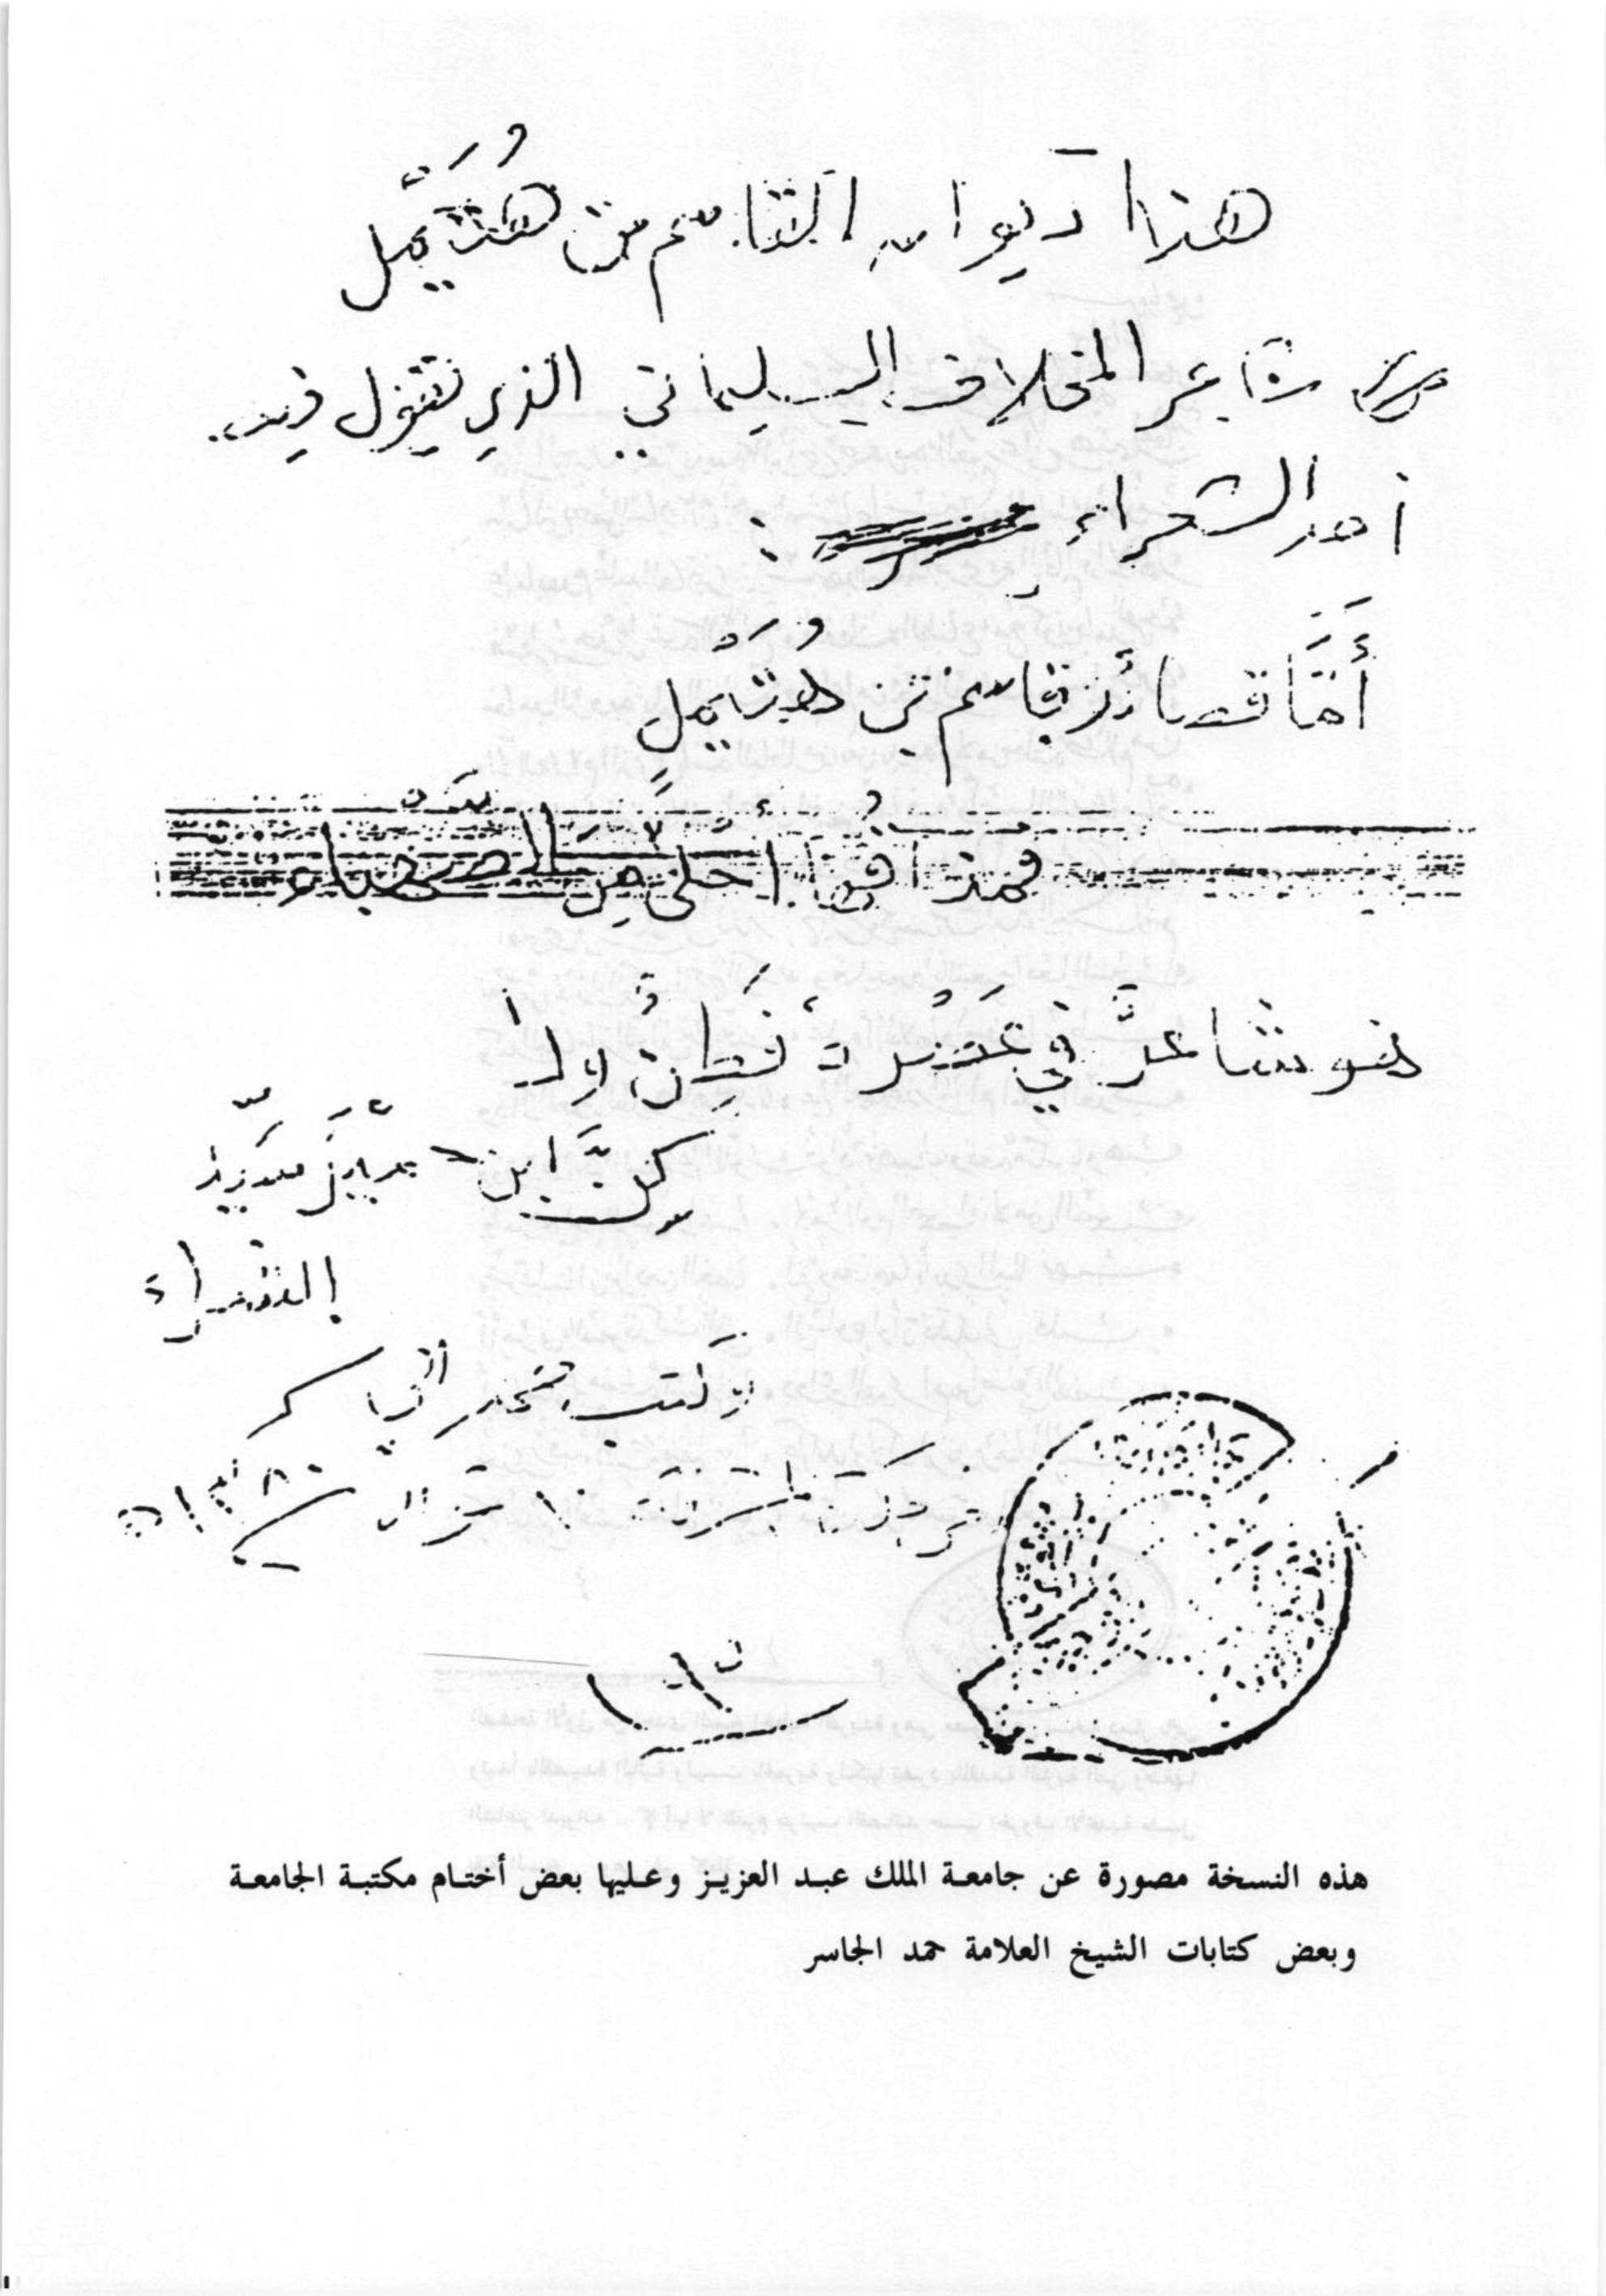 هذا ديوان القاسم بن هُتَيْمِل
شاعر المخلاف السليماني الذي يقول فيه
أحد الشعراء :
أمَّا قصائد قاسم بن هُتَيْمِلٍ
فمذاقها أحلى من الصهباء
هو شاعرٌ في عصره فَطِنٌ ولا
كن
الشعراء
وكتب حمد الجاسر
١٠ شوال
هذه النسخة مصورة عن جامعة الملك عبد العزيز وعليها بعض أختام مكتبة الجامعة
وبعض كتابات الشيخ العلامة حمد الجاسر